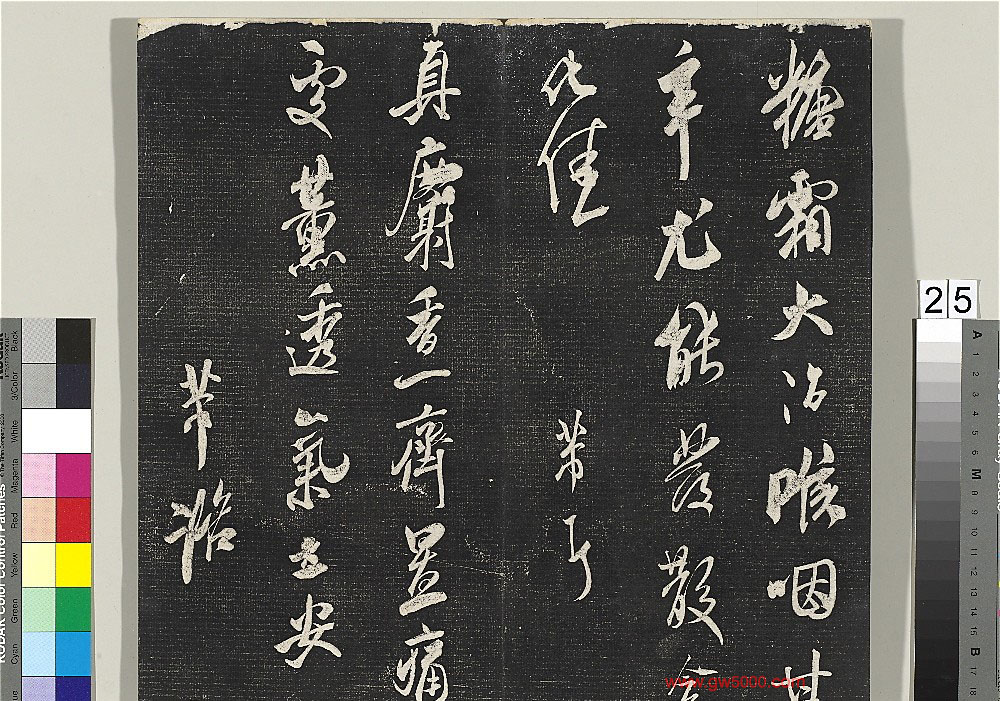 糖霜大治喉咽甘
辛尤能發散
化佳 芾
真麝香一齊置痛
處薰透氣立安
芾
25
Black
3/Color
White
Magenta
Red
Yellow
Green
Cyan
KODAK Color Control Patches
A 1 2 3 4 5 6 M 8 9 10 11 12 13 14 15 B 17 18
www.gw5000.com